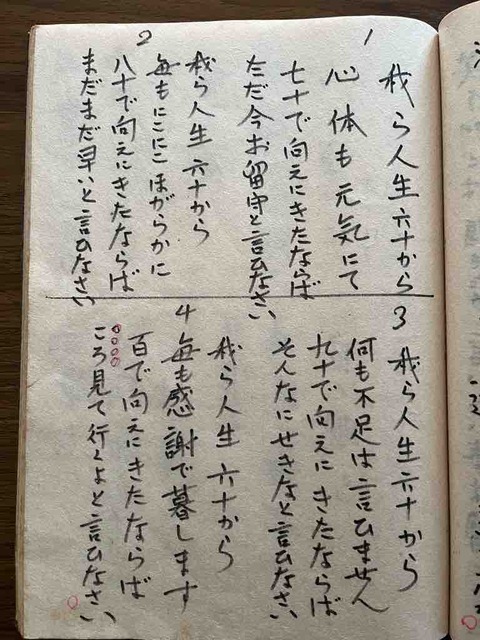 1
我ら人生六十から
心体も元気にて
七十で向えにきたならば
ただ今お留守と言ひなさい
2
我ら人生六十から
毎もにこにこほがらかに
八十で向えにきたならば
まだまだ早いと言ひなさい
3
我ら人生六十から
何も不足は言ひません
九十で向えにきたならば
そんなにせきなと言ひなさい
4
我ら人生六十から
毎も感謝で暮します
百で向えにきたならば
ころ見て行くよと言ひなさい